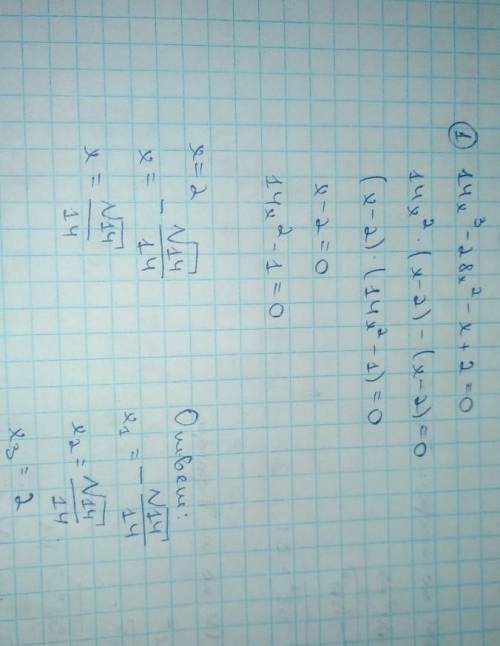 ① 14x³ - 28x² - x + 2 = 0
14x² · (x - 2) - (x - 2) = 0
(x - 2) · (14x² - 1) = 0
x - 2 = 0
14x² - 1 = 0
x = 2
x = - √14/14
x = √14/14
Ответ:
x₁ = - √14/14
x₂ = √14/14
x₃ = 2